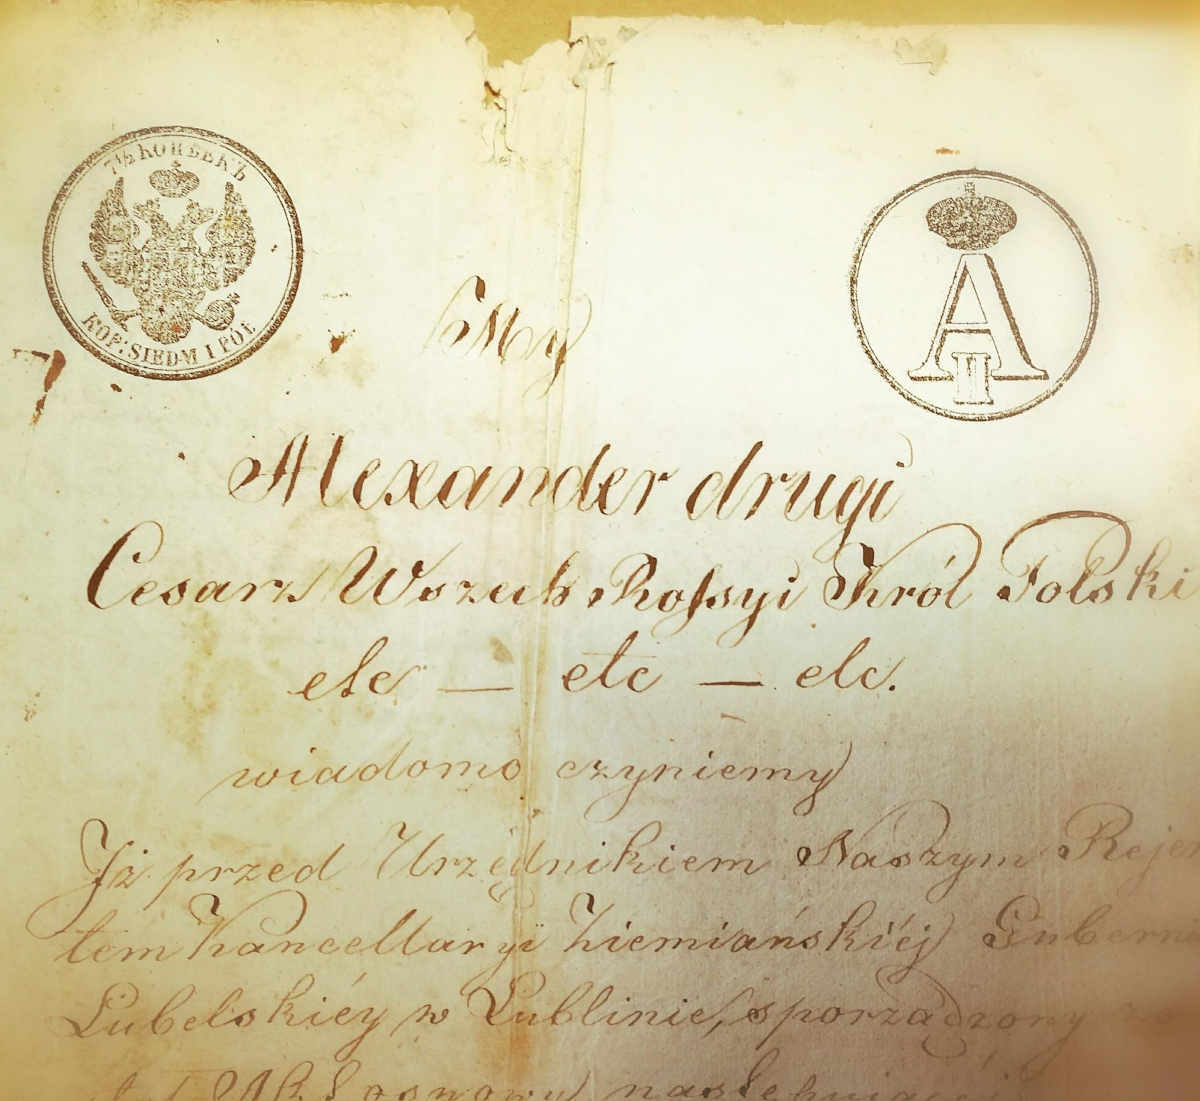 7½ КОПѢЕКЪ
KOP: SIEDM I PÓŁ
A
II
My
Alexander drugi
Cesarz Wszech Rossyi Król Polski
etc — etc — etc.
wiadomo czyniemy
Iż przed Urzędnikiem Naszym Rejen
tem Kancellaryi Ziemiańskiéj Gubern
Lubelskiéy w Lublinie, sporządzony